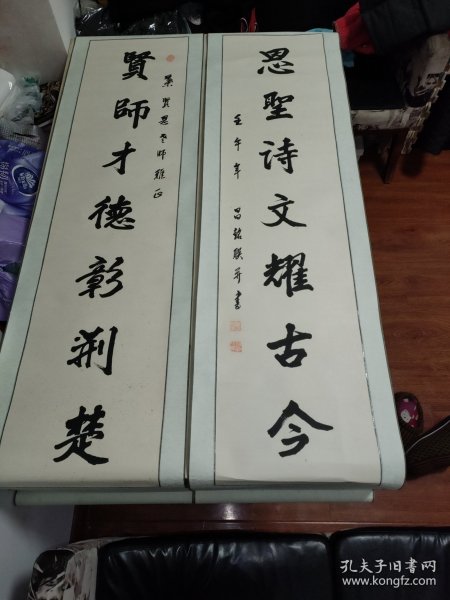 賢師才德彰荆楚
賢思老师雅正
思聖诗文耀古今
壬午年 昌銘联并書
孔夫子旧书网
www.kongfz.com